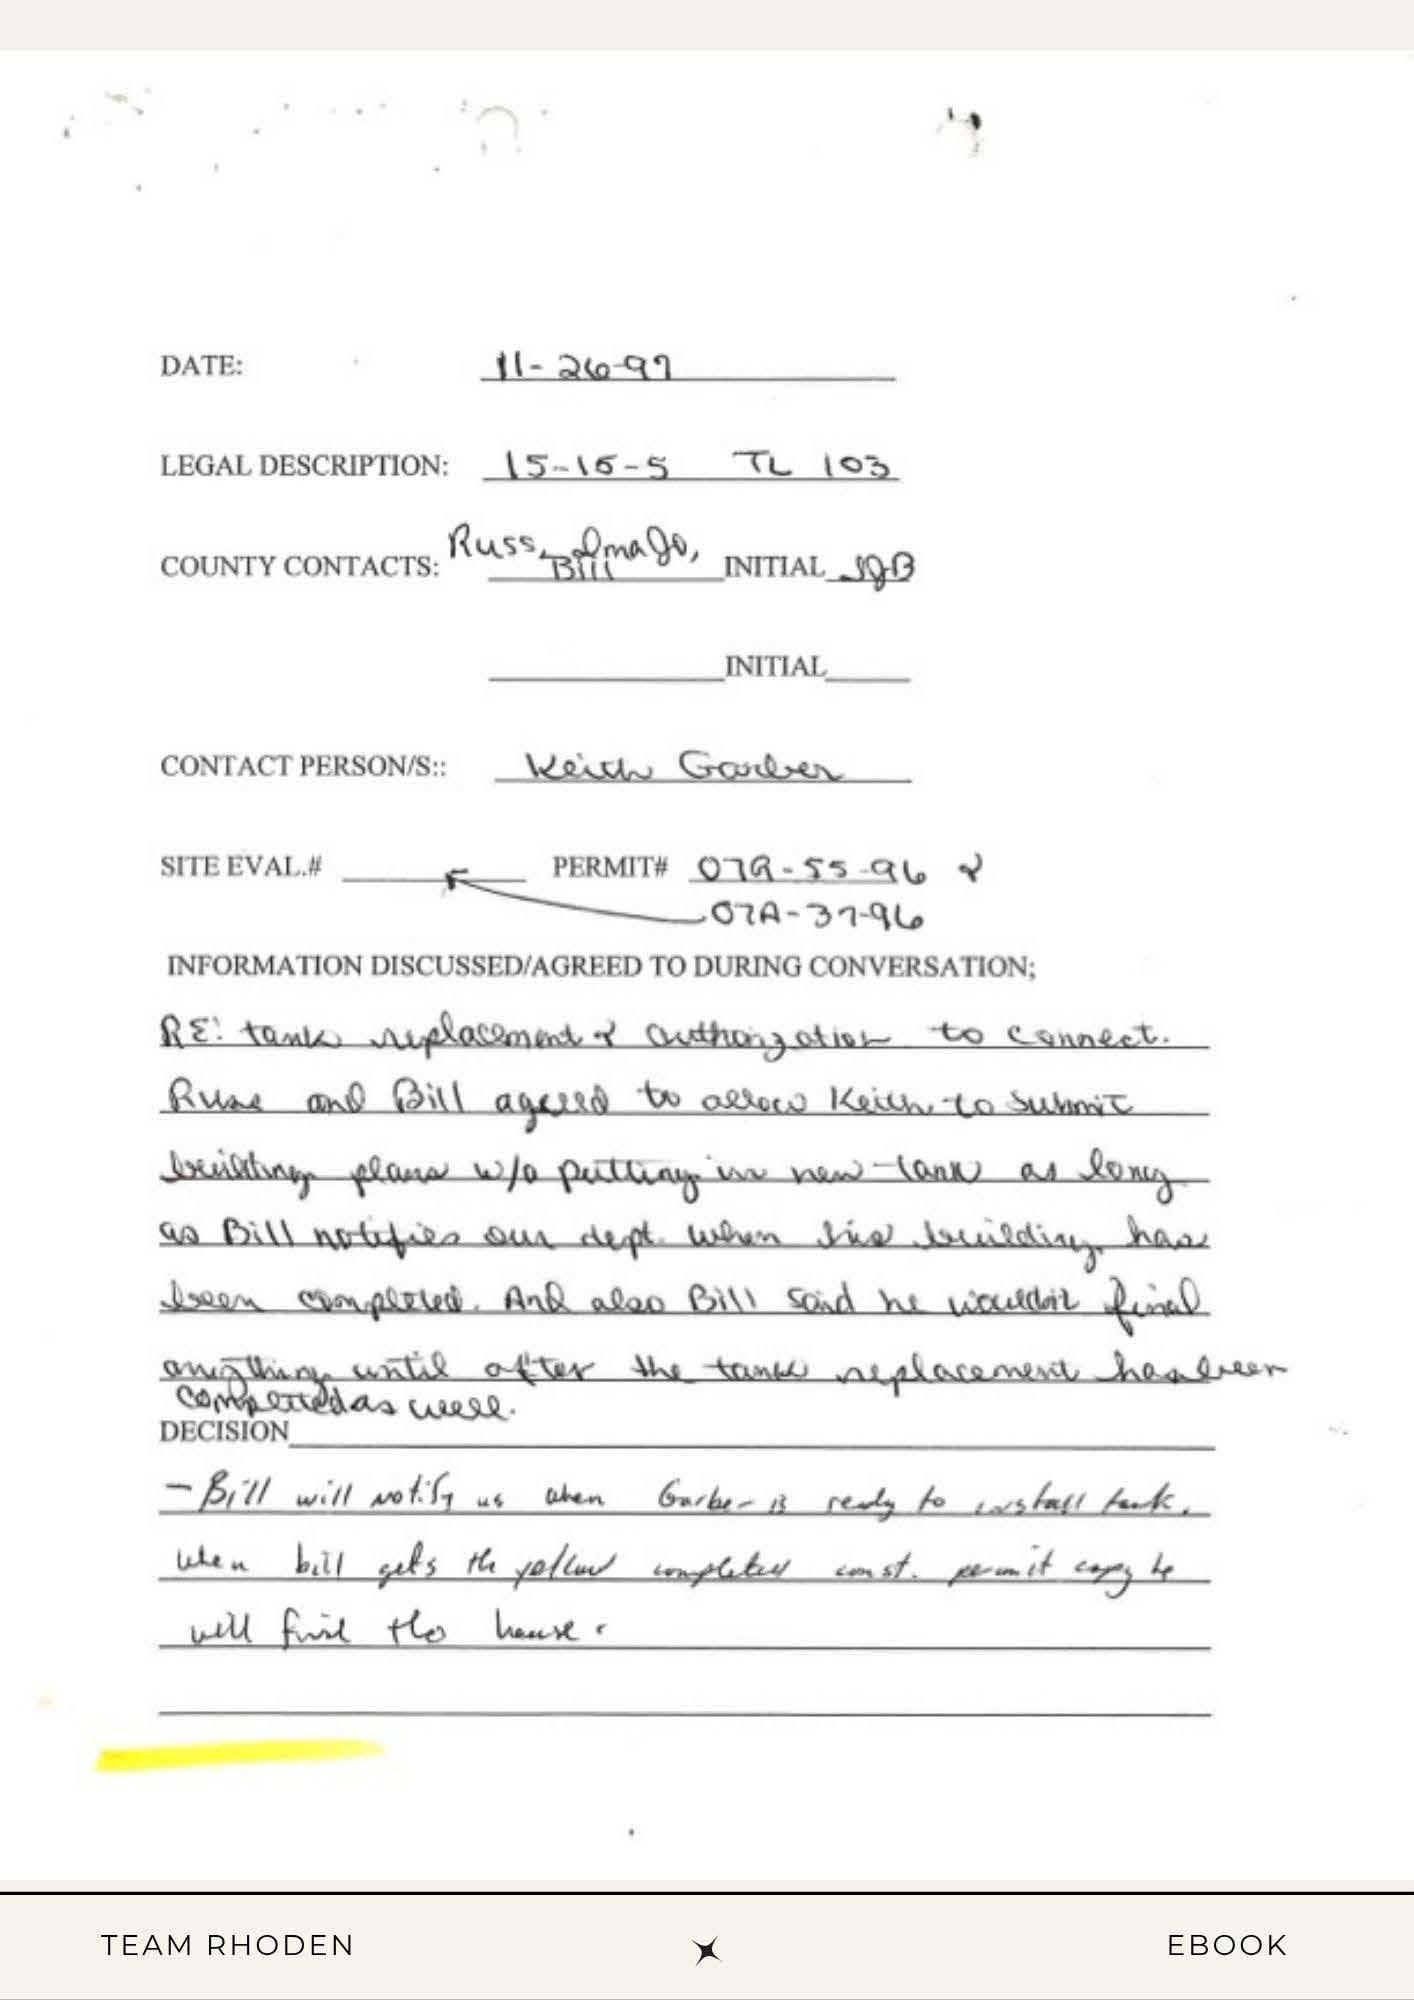 DATE: 11-26-97
LEGAL DESCRIPTION: 15-16-5 TL 103
Russ, ImaJo,
COUNTY CONTACTS: Bill INITIAL IJB
INITIAL
CONTACT PERSON/S:: Keith Garber
SITE EVAL.# PERMIT# 07R-55-96 &
07A-37-96
INFORMATION DISCUSSED/AGREED TO DURING CONVERSATION;
RE: tank replacement & authorization to connect.
Russ and Bill agreed to allow Keith to submit
building plans w/o putting in new tank as long
as Bill notifies our dept. when his building has
been completed. And also Bill said he wouldn't final
anything until after the tank replacement has been
completed as well.
DECISION
- Bill will notify us when Garber is ready to install tank.
when bill gets the yellow completed const. permit copy he
will final the house.
TEAM RHODEN
EBOOK